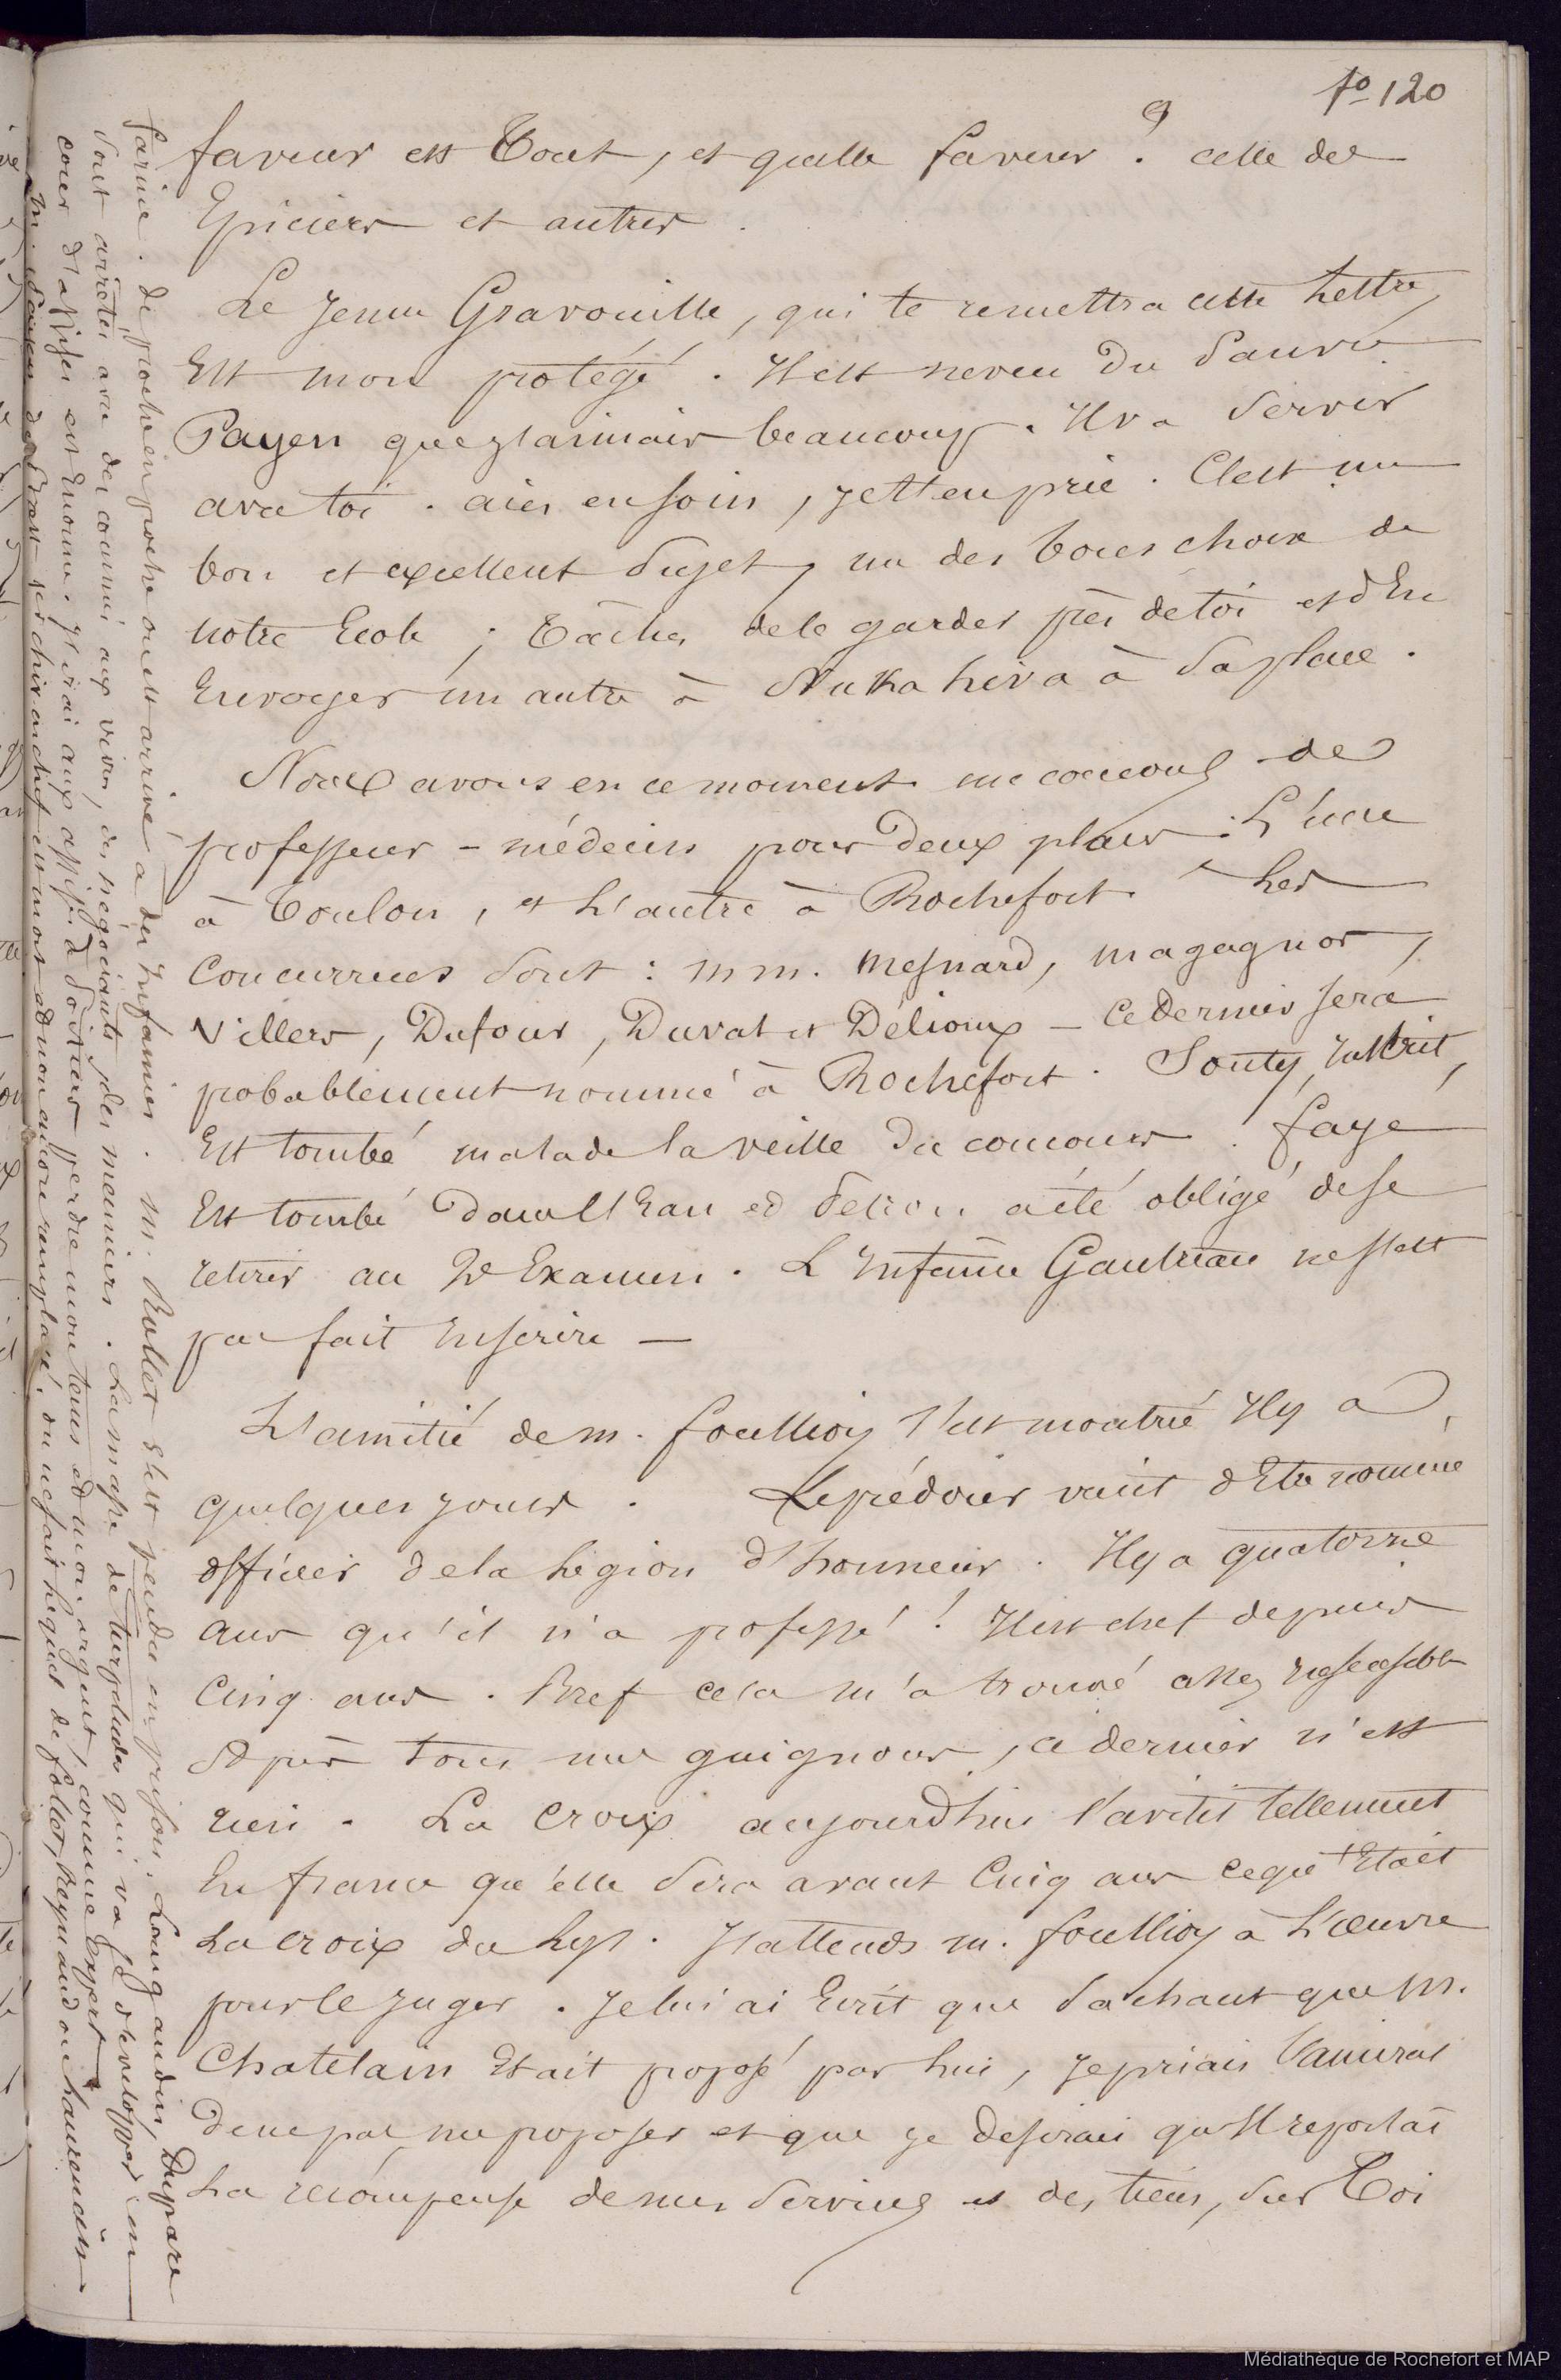 fo 120
faveur est Tout, et quelle faveur ? celle des
Epiciers et autres.
Le jeune Gravouille, qui te remettra cette Lettre,
Est mon protégé. Il est neveu du Pauvre
Payen que j'aimais beaucoup. Il va Servir
avec toi. aies en soin, je t'en prie. C'est un
bon et excellent Sujet, un des bons choix de
notre Ecole ; Tâches de le garder près de toi et d'En
Envoyer un autre à Nukahiva à Sa place.
Nous avons en ce moment un concours de
professeur - médecin pour Deux places. L'une
à Toulon, et L'autre à Rochefort. Les
Concurrents Sont : m m. Mesnard, magagnos,
Villers, Dufour, Duval et Délioux _ Ce Dernier sera
probablement nommé à Rochefort. Souty,
Est tombé malade la veille du concours. faye
Est tombé Dans l'Eau et a été obligé de se
retirer au 2e Examen. L'infâme Gautreau ne s'est
pas fait Inscrire _
L'amitié de m. foullioy s'est montrée Il y a
quelques jours. Leprédour vient d'Etre nommé
officier de la Légion d'honneur. Il y a quatorze
ans qu'il n'a professé ! Il est chef depuis
Cinq ans. Bref cela m'a trouvé assez insensible
Après tous mes guignons, ce dernier n'est
rien. La croix aujourd'hui s'avilit tellement
En france qu'elle Sera avant Cinq ans ce qu'Etait
La croix du Lys. J'attends m. foullioy à L'œuvre
pour le juger. Je lui ai Ecrit que Sachant que m.
Chatelain Etait proposé par lui, je priais l'amiral
De ne pas me proposer et que je desirais qu'Il reportât
La récompense de mes Services et des tiens, sur Toi
farine. de proche en proche on est arrivé à des Infamies. m. Rollet s'est pendu en prison. Longaudin, Dupare
Sont arrêtés avec des commis aux vivres, des négociants, des meuniers. La masse de turpitudes qui va se développer en
cour d'assises est Enorme. J'irai aux assises à Poitiers perdre mon tems et mon argent, comme Expert
est mort et non encore remplacé. on ne sait lequel de follet, Reynaud ou Laurencin
Médiathèque de Rochefort et MAP